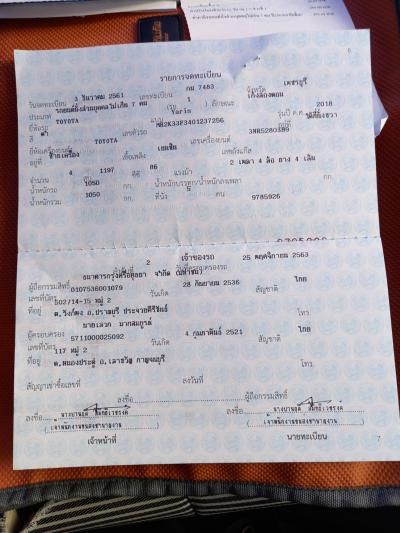 6
รายการจดทะเบียน
วันจดทะเบียน 3 ธันวาคม 2561 เลขทะเบียน กม 7483 จังหวัด เพชรบุรี
ประเภท รถยนต์นั่งส่วนบุคคลไม่เกิน 7 คน (รย. 1 ) ลักษณะ เก๋งสองตอน
ยี่ห้อรถ TOYOTA แบบ Yaris รุ่นปี ค.ศ. 2018
สี ดำ เลขตัวรถ MR2K33F3401237256 อยู่ที่
ยี่ห้อเครื่องยนต์ TOYOTA เลขเครื่องยนต์ 3NR5280389
อยู่ที่ ซ้ายเครื่อง เชื้อเพลิง เบนซิน เลขถังแก๊ส
จำนวน 4 สูบ 1197 ซีซี 86 แรงม้า 2 เพลา 4 ล้อ ยาง 4 เส้น
น้ำหนักรถ 1050 กก. น้ำหนักบรรทุก/น้ำหนักลงเพลา กก.
น้ำหนักรวม 1050 กก. ที่นั่ง 5 คน 9785926
เจ้าของรถ
ลำดับที่ 2 วันที่ครอบครองรถ 25 พฤศจิกายน 2563
ผู้ถือกรรมสิทธิ์ ธนาคารกรุงศรีอยุธยา จำกัด (มหาชน)
เลขที่บัตร 0107536001079 วันเกิด 28 กันยายน 2536 สัญชาติ ไทย
ที่อยู่ 502/14-15 หมู่ 2
ต.วังก์พง อ.ปราณบุรี ประจวบคีรีขันธ์ โทร.
ผู้ครอบครอง นายเลวก มากสมบูรณ์
เลขที่บัตร 5711000025092 วันเกิด 4 กุมภาพันธ์ 2521 สัญชาติ ไทย
ที่อยู่ 117 หมู่ 2
ต.หนองประดู่ อ.เลาขวัญ กาญจนบุรี โทร.
สัญญาเช่าซื้อเลขที่ ลงวันที่
ลงชื่อ ผู้ถือกรรมสิทธิ์
ลงชื่อ ลงชื่อ
( เจ้าพนักงานขนส่งชำนาญงาน ) ( เจ้าพนักงานขนส่งชำนาญงาน )
เจ้าหน้าที่ นายทะเบียน
7